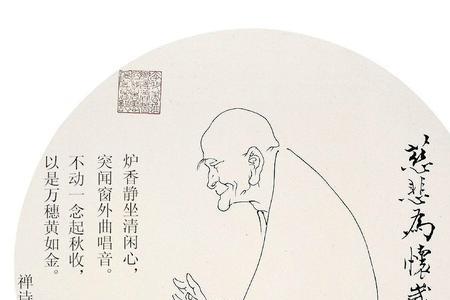 慈悲為懷
炉香静坐清闲心，
突闻窗外曲唱音。
不动一念起秋收，
以是万穗黄如金。
禅诗